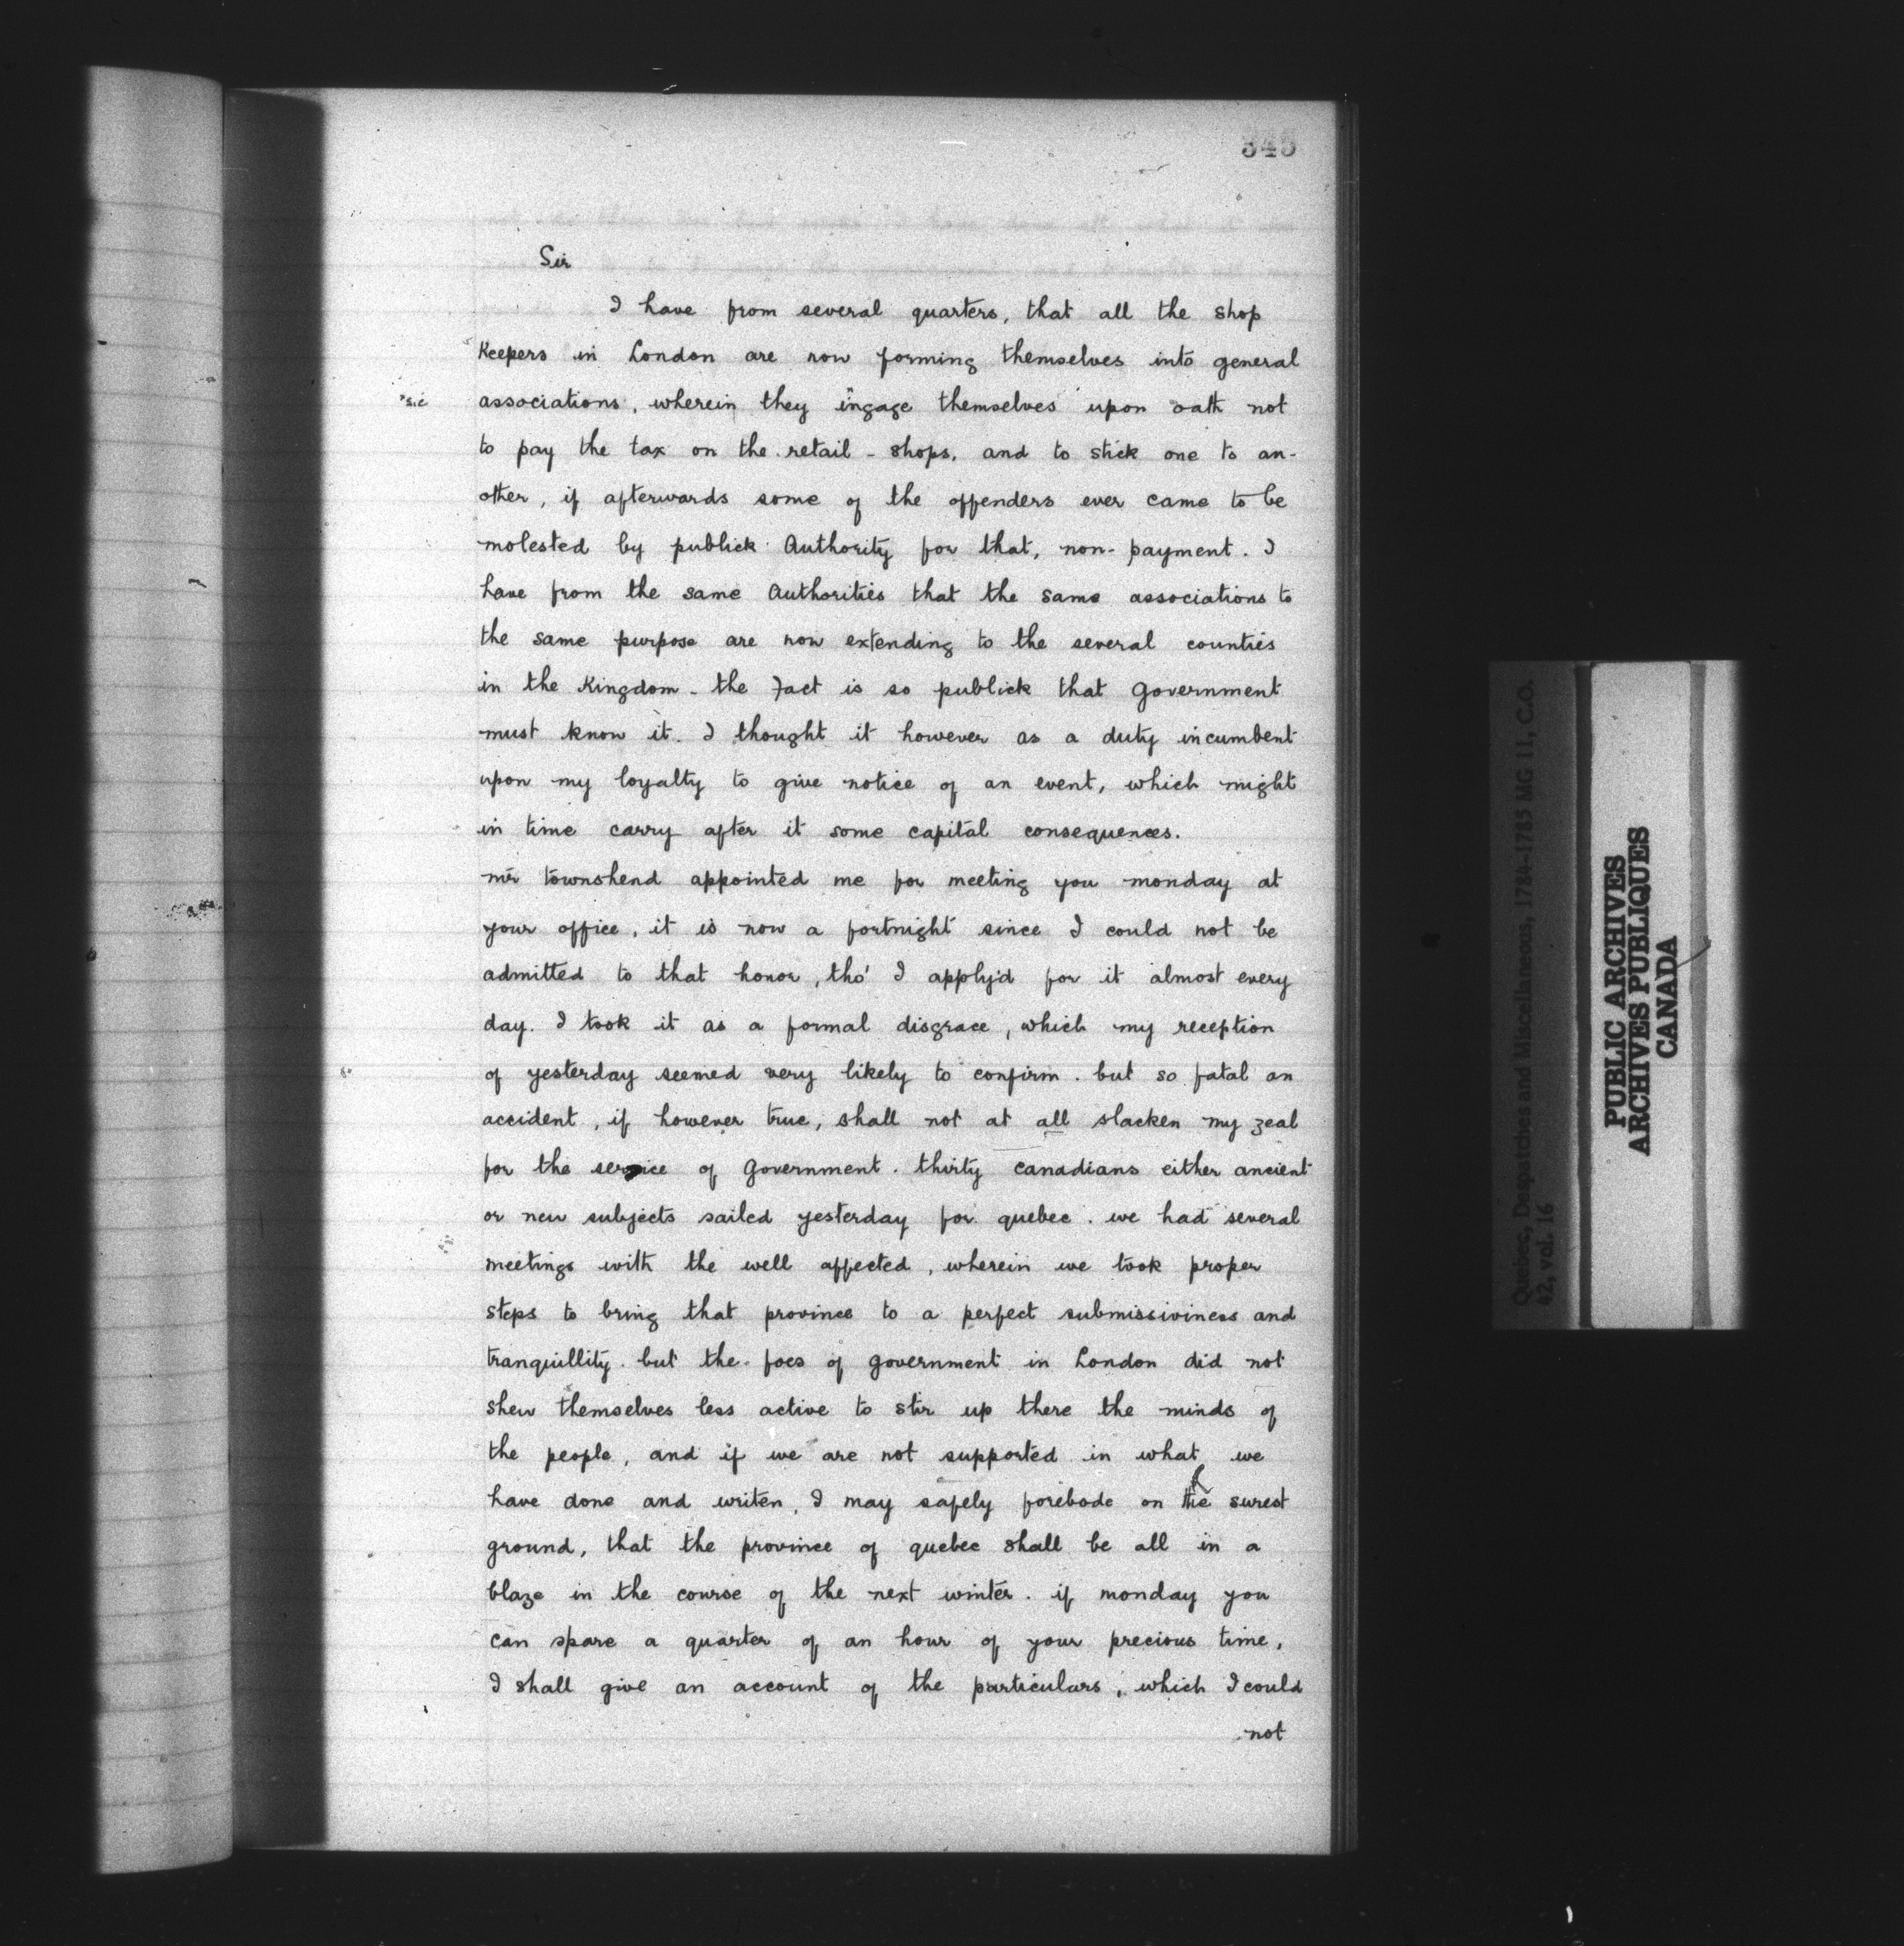 345
Sir
I have from several quarters, that all the shop
Keepers in London are now forming themselves into general
*sic
associations, wherein they *ingage themselves upon oath not
to pay the tax on the retail - shops, and to stick one to an-
other, if afterwards some of the offenders ever came to be
molested by publick Authority for that, non-payment. I
have from the same Authorities that the same associations to
the same purpose are now extending to the several counties
in the Kingdom - the fact is so publick that government
must know it. I thought it however as a duty incumbent
upon my loyalty to give notice of an event, which might
in time carry after it some capital consequences.
mr townshend appointed me for meeting you monday at
your office, it is now a fortnight since I could not be
admitted to that honor, tho' I apply'd for it almost every
day. I took it as a formal disgrace, which my reception
of yesterday seemed very likely to confirm. but so fatal an
accident, if however true, shall not at all slacken my zeal
for the service of government. thirty canadians either ancient
or new subjects sailed yesterday for quebec. we had several
meetings with the well affected, wherein we took proper
steps to bring that province to a perfect submissiviness and
tranquillity. but the foes of government in London did not
shew themselves less active to stir up there the minds of
the people, and if we are not supported in what we
have done and writen, I may safely forebode on the surest
ground, that the province of quebec shall be all in a
blaze in the course of the next winter. if monday you
can spare a quarter of an hour of your precious time,
I shall give an account of the particulars, which I could
not
Quebec, Despatches and Miscellaneous, 1784-1785 MG 11, C.O.
42, vol. 16
PUBLIC ARCHIVES
ARCHIVES PUBLIQUES
CANADA